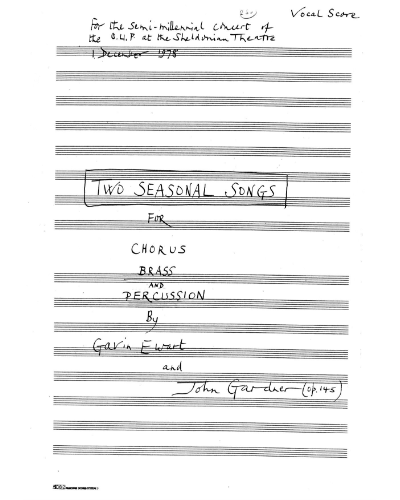 Vocal Score
For the Semi-millennial Concert of
the O.U.P. at the Sheldonian Theatre
1 December 1978
TWO SEASONAL SONGS
FOR
CHORUS
BRASS
AND
PERCUSSION
By
Gavin Ewart
and
John Gardner (op. 145)